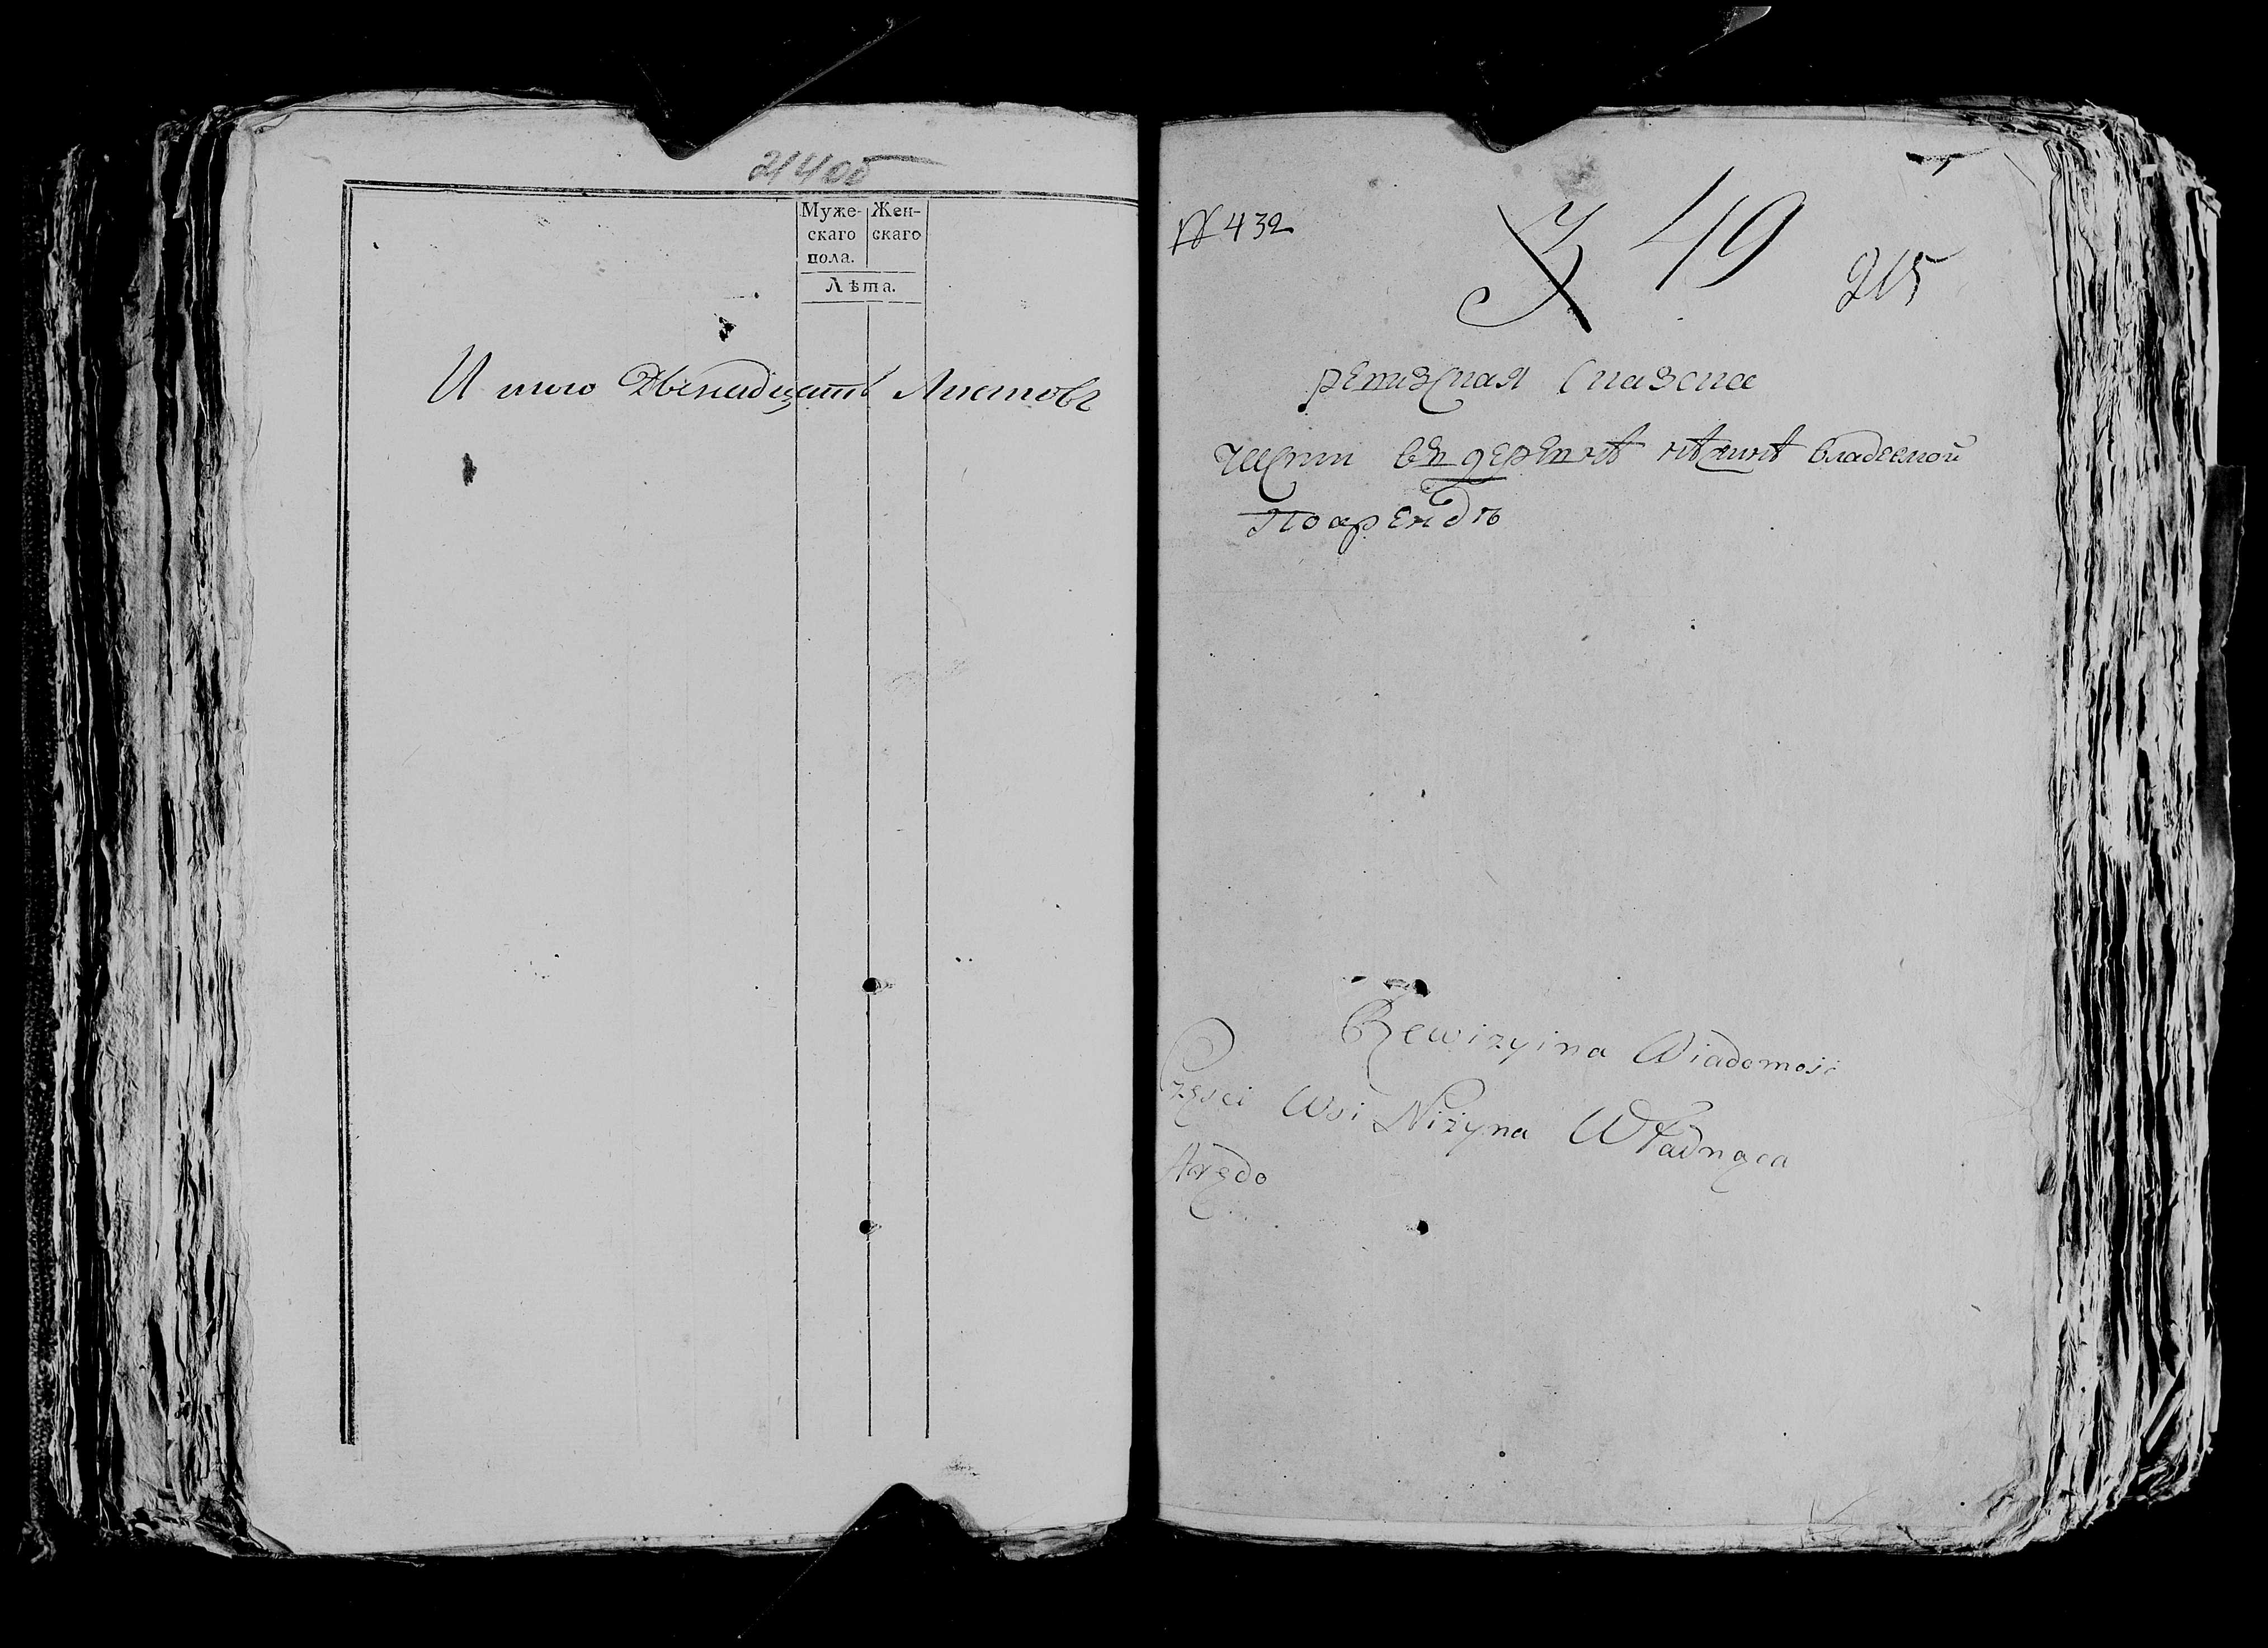 214об
Муже- Жен-
скаго скаго
пола.
Лѣта.
Итого Двенадцать Листовъ
№ 432
3 49
215
ревизская сказка
части въ деревнѣ нѣжинѣ владеемой
по арендѣ
Rewizyina Wiadomość
Części Wsi Niżyna Władnąca
Arędo